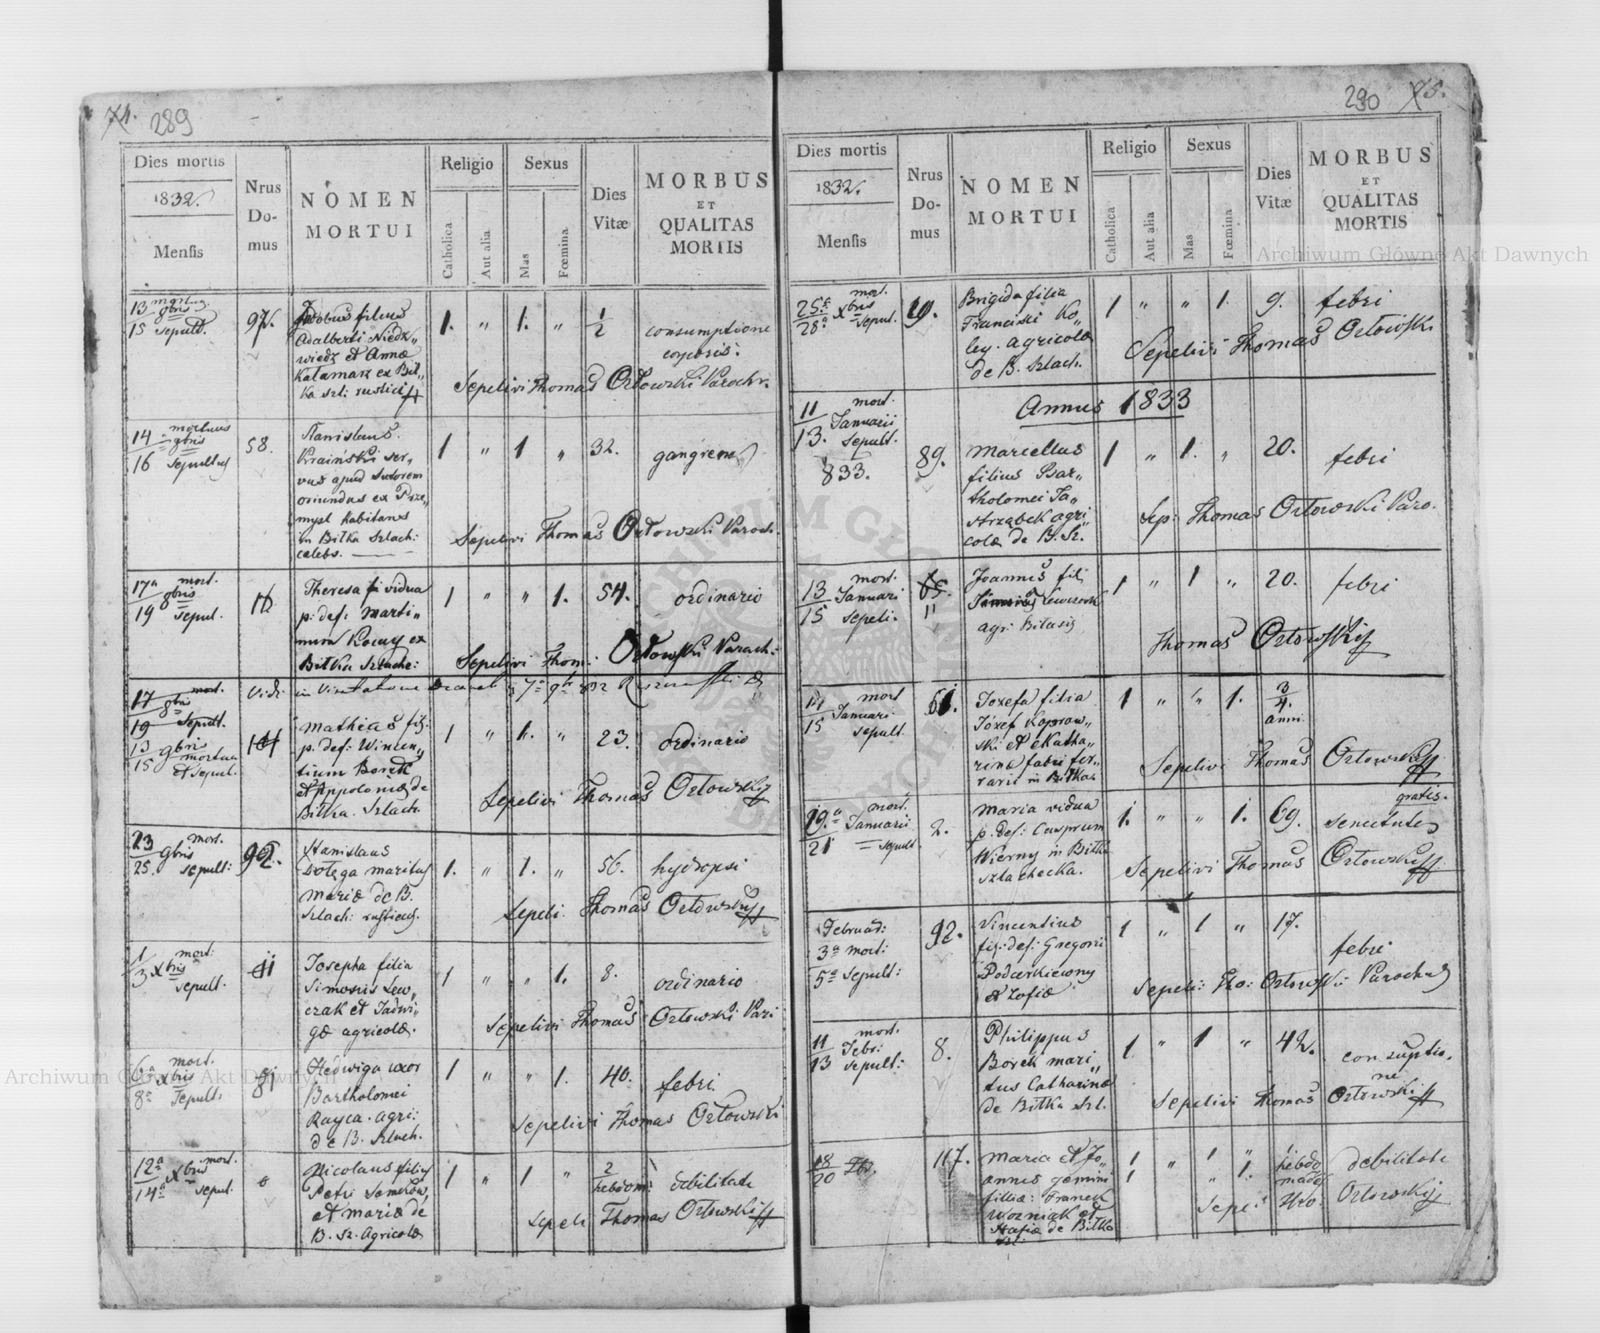 74. 289
Dies mortis
1832.
Mensis
Nrus
Do-
mus
NOMEN
MORTUI
Religio
Catholica
Aut alia
Sexus
Mas
Fœmina
Dies
Vitæ
MORBUS
ET
QUALITAS
MORTIS
13 gbris
15 Sepult.
97.
filius
Adalberti Niedz„
wiedz et Annæ
Katamarz ex Bił„
ka szl: rustici
1. „ 1. „ 1/2
consumptione
corporis.
Sepelivi Thomas Orłowski Paroch.
14 mortuus
gbris
16 Sepultus
58.
Stanislaus
Kraiński ser„
vus apud
oriundus ex Prze„
mysl habitans
in Biłka Szlach:
celebs.
1 „ 1 „ 32.
gangrena
Sepelivi Thomas Orłowski Paroch.
17a mort.
gbris
19 Sepul.
Theresa vidua
p: def: Marti„
num Kocuy ex
Biłka Szlache:
1 „ „ 1. 54.
ordinario
Sepelivi Thom: Orłowski Paroch:
17 gbris mort.
19 Sepult.
13 gbris
15 mortuus
et Sepul.
Vidi in Visitatione
Mathias fil:
p: def: Wincen„
tium Borek
et Appoloniæ de
Biłka. Szlach.
1 „ 1. „ 23.
ordinario
Sepelivi Thomas Orłowski
23 mort.
gbris
25. Sepult:
92.
Stanislaus
Dołęga maritus
Mariæ de B.
Szlach: rusticus.
1. „ 1. „ 56.
hydropsi
Sepeli: Thomas Orłowski
1 mort.
3 Xbris
Sepult.
Josepha filia
Simonis Lew„
czak et Jadwi„
gæ agricolæ.
1 „ „ 1. 8.
ordinario
Sepelivi Thomas Orłowski Par:
6a mort.
Xbris
8a Sepult:
Hedwiga uxor
Bartholomei
Rayca. agri:
de B. Szlach.
1 „ „ 1. 40.
febri
Sepelivi Thomas Orłowski
12a mort.
Xbris
14a Sepul.
Nicolaus filius
Petri
et Mariæ de
B. Sz. Agricolæ
1 „ 1 „ 2
hebdom:
debilitate
Sepeli Thomas Orłowski
290 75.
Dies mortis
1832.
Mensis
Nrus
Do-
mus
NOMEN
MORTUI
Religio
Catholica
Aut alia
Sexus
Mas
Fœmina
Dies
Vitæ
MORBUS
ET
QUALITAS
MORTIS
25a mort.
Xbris
28a Sepul.
19.
Brigida filia
Francisci Ko„
ley. agricolæ
de B. Szlach.
1 „ „ 1. 9.
febri
Sepelivi Thomas Orłowski
Annus 1833
11 mort.
Januarii
13. Sepult.
833.
89.
Marcellus
filius Bar„
tholomei Ja„
strząbek agri„
colæ de B. Sz.
1 „ 1. „ 20.
febri
Sep: Thomas Orłowski Paro.
13 mort.
Januari
15 Sepeli.
11
Joannes fil:
Lewczak
agr: Biłæsis
1 „ 1 „ 20.
febri
Thomas Orłowski
14 mort
Januari
15 Sepult
61.
Jozefa filia
Józef Koprow„
ski et Katha„
rina fabri fer„
rarii in Biłka.
1 „ „ 1. 3/4.
anni
Sepelivi Thomas Orłowski
19.a mort.
Januarii
21 Sepult
2.
Maria vidua
p: def: Casprum
Wierny in Biłka
Szlachecka.
1. „ „ 1. 69.
gratis.
senectute
Sepelivi Thomas Orłowski
Februar:
3a mort:
5a Sepult:
92.
Vincentius
fil: def: Gregorii
et Zofiæ
1 „ 1 „ 17.
febri
Sepeli: Tho: Orłowski Parochus
11 mort.
Febr:
13 Sepult:
8.
Philippus
Borek mari„
tus Catharinæ
de Biłka Szl.
1. „ 1 „ 42.
consuptio„
ne
Sepelivi Thomas Orłowski
18
20
117.
Maria et Jo„
annes gemini
filiæ: Franck
Wozniak et
Zofiæ de Biłka
Szl:
1 „ 1 „
1 „ 1.
hebdo
madas
debilitate
Sepe: Tho. Orłowski
Archiwum Główne Akt Dawnych
Archiwum Główne Akt Dawnych